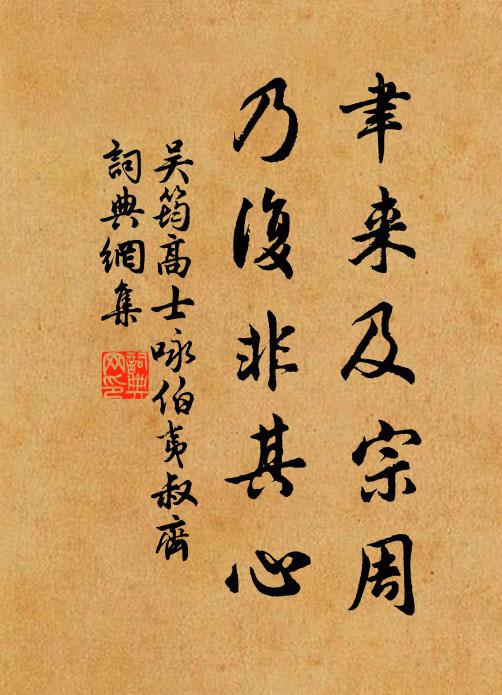 聿来及宗周
乃復非其心
吴筠高士咏伯夷叔齊
詞典網集
詞典网印